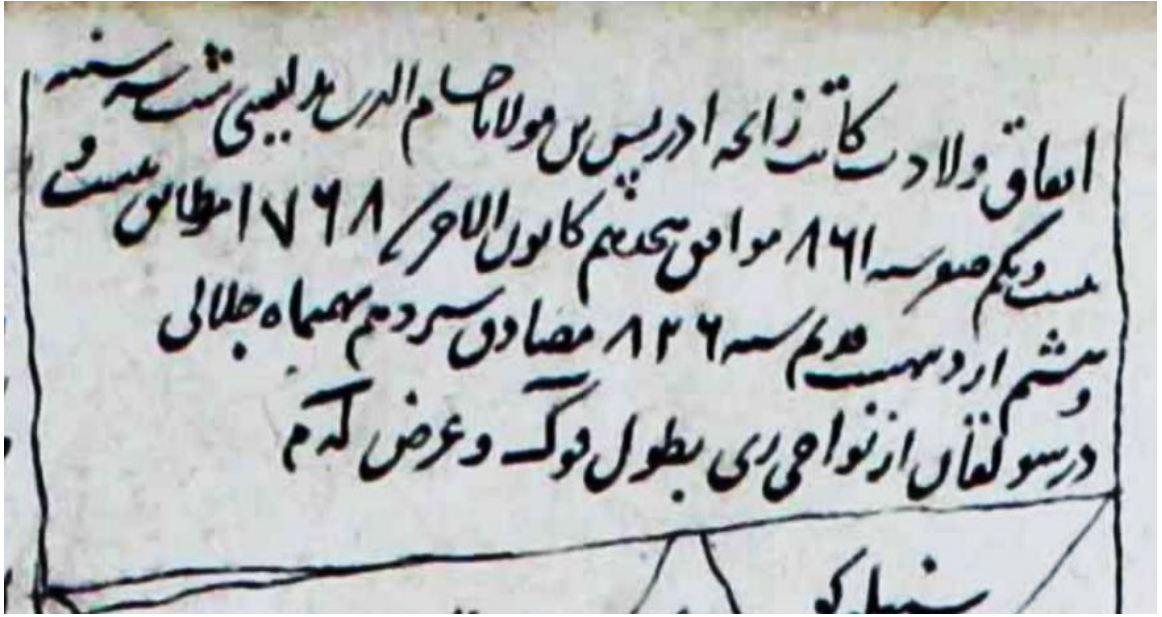 اتفاق ولادت کاتب زائجه ادریس بن مولانا حسام الدین بدلیسی شب سه شنبه
بیست و یکم صفر سنه ۸۶۱ موافق هجدهم کانون الاخر ۱۷۶۸ مطابق بیست و
ششم اردیبهشت قدیم سنه ۸۲۶ مصادف سیزدهم بهمنماه جلالی
در سولقان از نواحی ری بطول فوک و عرض له م
سنبله کو